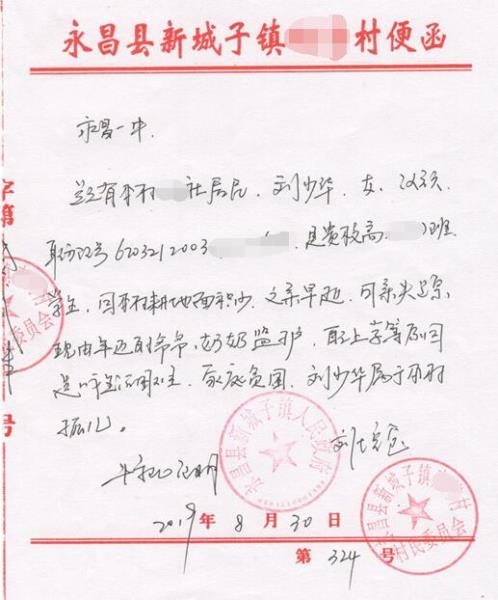 永昌县新城子镇 村便函
永昌一中.
兹有本村 社居民, 刘少华, 女, 汉族,
身份证号6203212003 , 是贵校高 班
学生, 因本村耕地面积少, 父亲早逝, 母亲失踪,
现由年迈的爷爷, 奶奶监护, 再加上 等原因
生活困难, 家庭贫困, 刘少华属于
孤儿。
特此证明
刘
2019年8月30日
第324号
字第
号
永昌县新城子镇人民政府
永昌县新城子镇 村
村民委员会
委员会